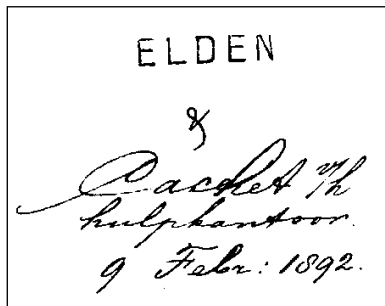 ELDEN
&
Cachet
hulpkantoor.
9 Febr: 1892.